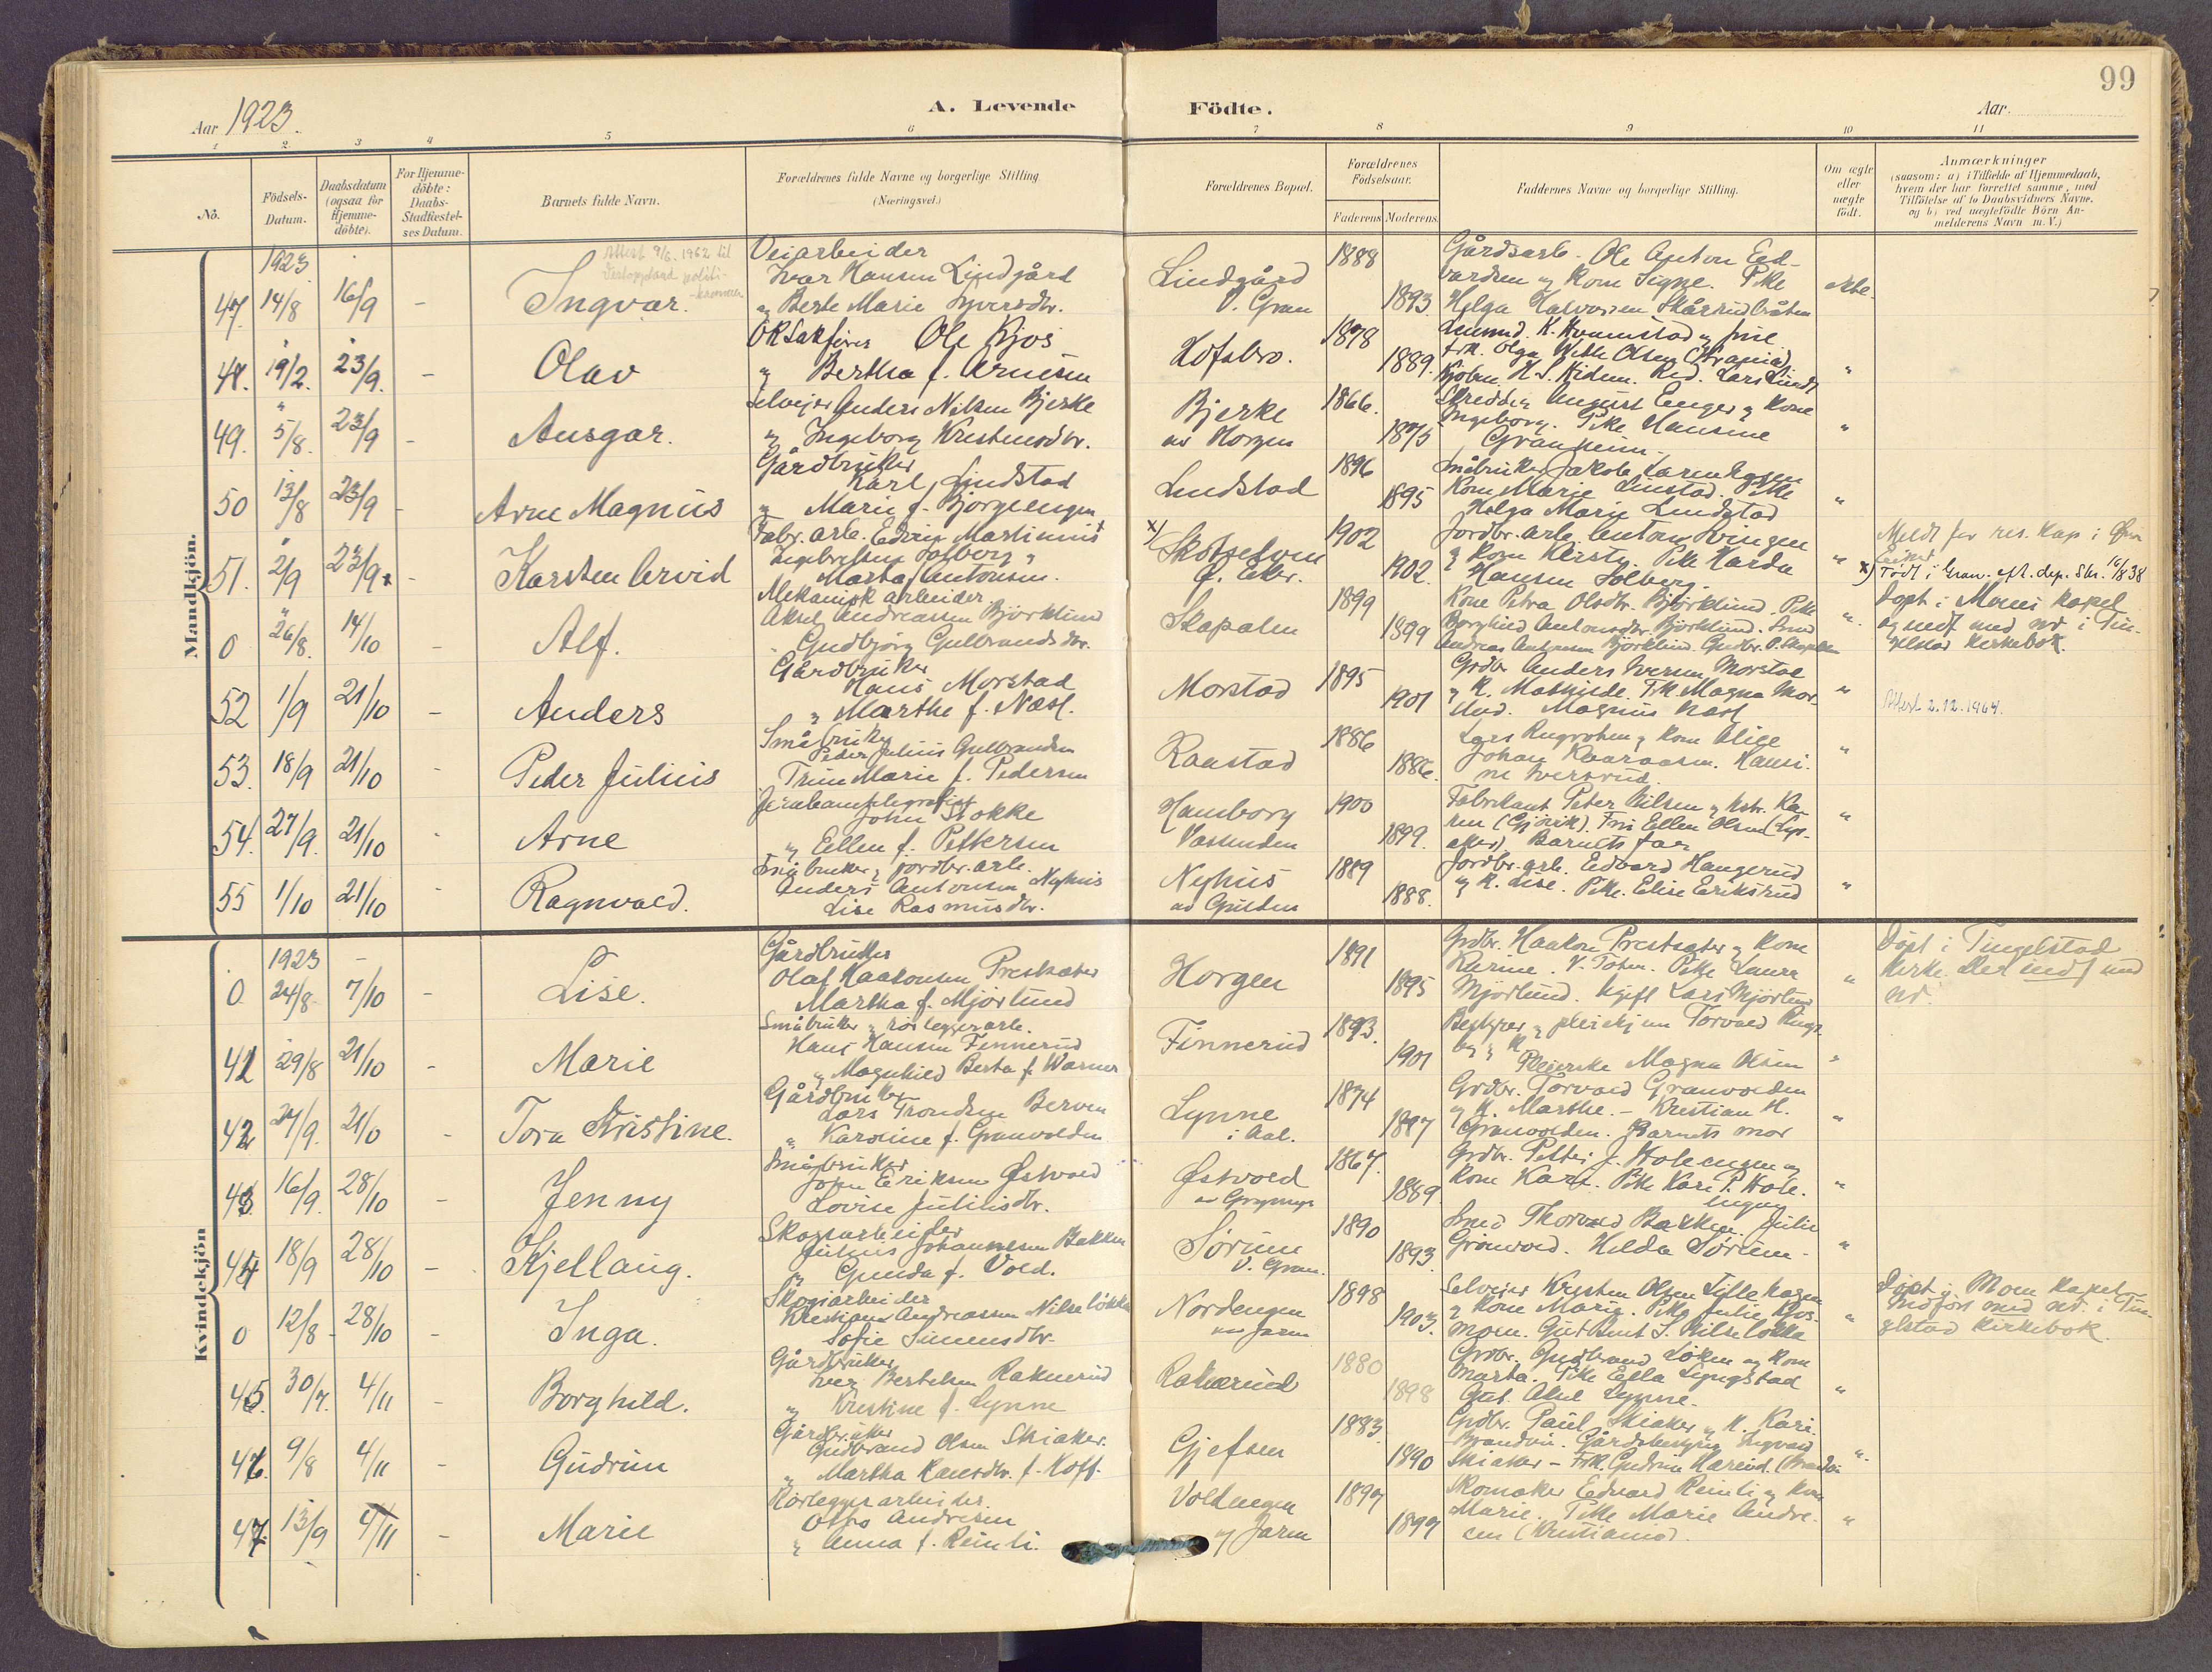 99
Aar 1923.
A. Levende Födte.
Aar.
1 2 3 4 5 6 7 8 9 10 11
No.
Födsels-
Datum.
Daabsdatum
(ogsaa for
Hjemme-
döbte).
For Hjemme-
döbte:
Daabs-
Stadfæstel-
ses Datum.
Barnets fulde Navn.
Forældrenes fulde Navne og borgerlige Stilling
(Næringsvei.)
Forældrenes Bopæl.
Forældrenes
Födselsaar.
Faderens Moderens.
Faddernes Navne og borgerlige Stilling.
Om ægte
eller
uægte
födt.
Anmærkninger
(saasom: a) i Tilfælde af Hjemmedaab,
hvem der har forrettet samme, med
Tilföielse af to Daabsvidners Navne,
og b) ved uægtefödte Börn An-
melderens Navn m. V.)
Mandkjön.
1923
47. 14/8 16/9 - Ingvar.
Attest 9/6. 1962 til
Vestoppland politi-
kammer
Veiarbeider
Ivar Hansen Lindgård
og Berte Marie Iversdtr.
Lindgård
V. Gran
1888
1893.
Gårdsarb. Ole Anton Ed-
vardsen og kone Signe. Pike
Helga Halvorsen Skårrudbråten
ekte.
48. 19/2. 23/9. - Olav
ORSakfører Ole Kjos
" Bertha f. Arnesen
Hofsbro.
1878
1889.
frk. Olga Olsen
Kjøbm. Red. Lars Lunde
"
49. 5/8. 23/9 - Ansgar.
Selveier Anders Nilsen Bjerke
og Ingeborg Kristensdtr.
Bjerke
av Horgen
1866.
1875
Skredder August Enger og kone
Ingeborg. Pike Hansine
Granheim.
"
50 13/8 23/9 - Arne Magnus
Gårdbruker
Karl Lindstad
og Marie f. Bjørgeengen
Lindstad
1896
1895
Småbruker Jakob Larsen
Kone Marie Linstad. Pike
Helga Marie Lindstad
"
51. 2/9 23/9 x - Karsten Arvid
Fabr. arb. Edvin Martinius
Ingebretsen Solberg
Marta Antonsen.
x) Skotselven
Ø. Eker.
1902
1902.
Jordbr. arb. Anton
og kone Kersty. Pike Harda
Hansen Solberg.
"
Meldt for res. kap. i Øvre
Eiker
x) Født i Gran. eft. dep. skr. 16/8 38
0 26/8. 14/10 - Alf.
Mekanisk arbeider
Aksel Andreassen Bjørklund
Gudbjørg Gulbrandsdtr.
Skapalen
1899
1899
Kone Petra Olsdtr. Bjørklund. Pike
Borghild Antonsdtr. Bjørklund. Smed
Andreas Antonsen Bjørklund. Gudbr. O. Skapalen
"
Døpt i Moens kapel
og indf. med nr i Tin-
gelstad kirkebok.
52 1/9 21/10 - Anders
Gårdbruker
Hans Morstad
" Marthe f. Næss.
Morstad
1895
1901
Grdbr. Anders Iversen Morstad
og K. Mathilde. Frk Magna Mor-
stad. Magnus Næss
"
Attest 2.12.1964.
53. 18/9 21/10 - Peder Julius
Småbruker
Peder Julius Gulbrandsen
Trine Marie f. Pedersen
Raustad
1886
1886.
Lars Rugroben og kone Alice
Johan Kaarassen. Hansi-
ne Iversrud.
"
54. 27/9. 21/10 - Arne
Jernbanetelegrafist
John Stokke
og Ellen f. Pettersen
Hamborg
Vassenden
1900
1899.
Fabrikant Peter Nilsen og hstr. Ka-
ren (Gjøvik). Fru Ellen Olsen (Lys-
aker). Barnets far
"
55 1/10 21/10 - Ragnvald.
Småbruker og jordbr. arb.
Anders Antonsen Nyhus
Lise Rasmusdtr.
Nyhus
av Gulden
1889
1888.
Jordbr. arb. Edvard Haugerud
og K. Lise. Pike. Elise Eriksrud
"
Kvindekjön
1923
0 24/8 7/10 - Lise.
Gårdbruker
Olaf Haakonsen Prestsæter
Martha f. Mjørlund
Horgen
1891
1895
Grdbr. Haakon Prestsæter og kone
Karine. V. Toten. Pike Laura
Mjørlund. Ugift Lars Mjørlund
"
Døpt i Tingelstad
kirke. Der indf med
nr.
41 29/8 21/10 - Marie
Småbruker og rørleggerarb.
Hans Hansen Finnerud
og Magnhild Berta f. Warner
Finnerud
1893.
1901
Bestyrer og pleier Torvald
Pleierske Magna Olsen
"
42 27/9. 21/0 - Tora Kristine.
Gårdbruker
Lars Trondsen Berven
" Karoline f. Granvolden
Lynne
i Aal.
1874
1897
Grdbr. Torvald Granvolden
og K. Marthe. - Kristian H.
Granvolden. Barnets mor
"
43. 16/9. 28/10 - Jenny
Småbruker
John Eriksen Østvold
Lovise Juliusdtr.
Østvold
1867.
1889
Grdbr. Petter J. Holeengen og
kone Kari. Pike Kari P. Hole-
engen
"
44 18/9 28/10 - Kjellaug.
Skogsarbeider
Julius Johannesen Bakken
og Gunda f. Vold.
Sørum
V. Gran.
1890
1893.
Smed Thorvald Bakken Julie
Grønvold. Hilda Sørum.
"
0 12/8 - 28/10 - Inga.
Skogsarbeider
Kristian Andreassen Nilseløkken
Sofie Simensdtr.
Nordengen
av Jaren
1898
1903.
Selveier Kristen Olsen Lillehagen
og kone Marie. Pike Julie
Moen. Gut Bent S. Nilseløkka
"
Døpt i Moen kapel
Indført med nr. i Tin-
gelstad kirkebok.
45. 30/7. 4/11 - Borghild.
Gårdbruker
Iver Bertelsen Raknerud
og Kristine f. Lynne
Raknerud
1880
1898
Grdbr. Gudbrand Løken og kone
Marta. Pike Ella Lyngstad
Gut. Aksel Lynne.
"
46. 9/8 4/11 - Gudrun
Gårdbruker
Gudbrand Olsen Skiaker.
" Martha Hansdtr. f. Hoff.
Gjefsen
1883
1890
Grdbr. Paul Skiaker og K. Kari.
Brandbu. Gårdsbestyrer Ingvald
Skiaker - Frk. Gudrun (Brandbu
"
47. 13/9 4/11 - Marie
Rørleggerarbeider.
Otto Andresen
" Anna f. Reinli.
Voldengen
av Jaren
1897
1897
Skomaker Edvard Reinli og kone
Marie. Pike Marie Andre-
sen (Kristiania).
"